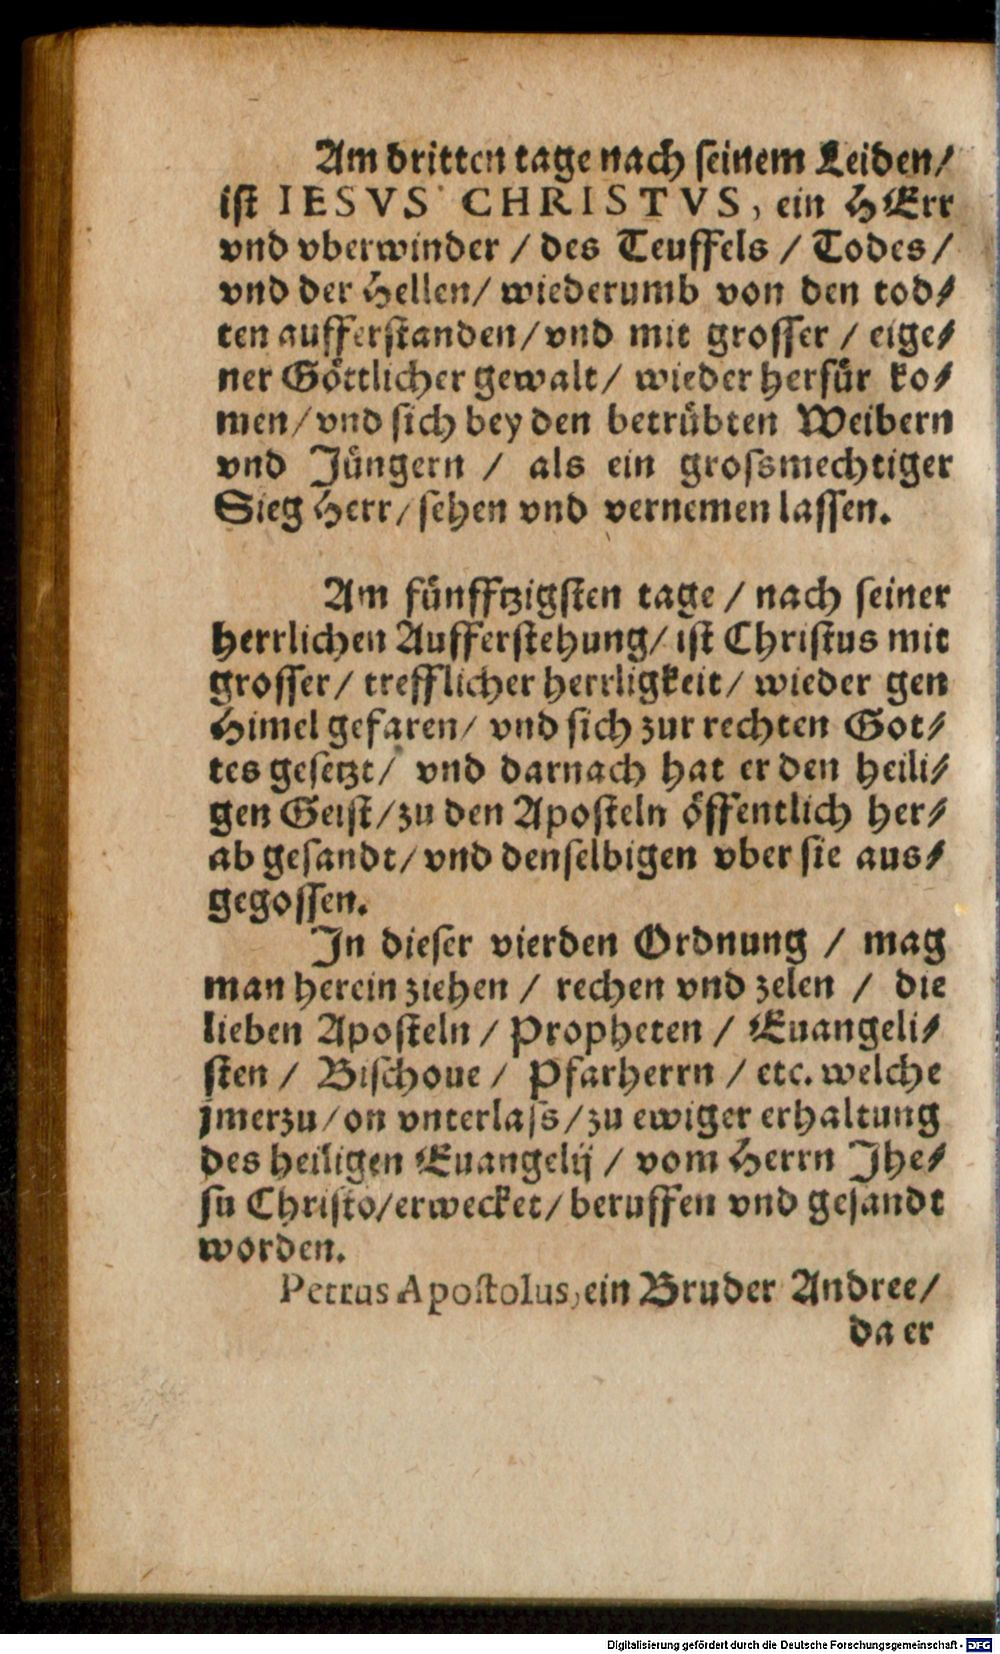 Am dritten tage nach seinem Leiden/
ist IESVS CHRISTVS, ein HErr
vnd vberwinder / des Teuffels / Todes /
vnd der Hellen/ wiederumb von den tod⸗
ten aufferstanden/ vnd mit grosser / eige⸗
ner Göttlicher gewalt/ wieder herfür ko⸗
men/ vnd sich bey den betrübten Weibern
vnd Jüngern / als ein grossmechtiger
Sieg Herr/ sehen vnd vernemen lassen.
Am fünfftzigsten tage / nach seiner
herrlichen Aufferstehung/ ist Christus mit
grosser/ trefflicher herrligkeit/ wieder gen
Himel gefaren/ vnd sich zur rechten Got⸗
tes gesetzt/ vnd darnach hat er den heili⸗
gen Geist/ zu den Aposteln öffentlich her⸗
ab gesandt/ vnd denselbigen vber sie aus⸗
gegossen.
In dieser vierden Ordnung / mag
man herein ziehen / rechen vnd zelen / die
lieben Aposteln / Propheten / Euangeli⸗
sten / Bischoue / Pfarherrn / etc. welche
jmerzu/ on vnterlass/ zu ewiger erhaltung
des heiligen Euangelij / vom Herrn Jhe⸗
su Christo/ erwecket/ beruffen vnd gesandt
worden.
Petrus Apostolus, ein Bruder Andree/
da er
Digitalisierung gefördert durch die Deutsche Forschungsgemeinschaft - DFG